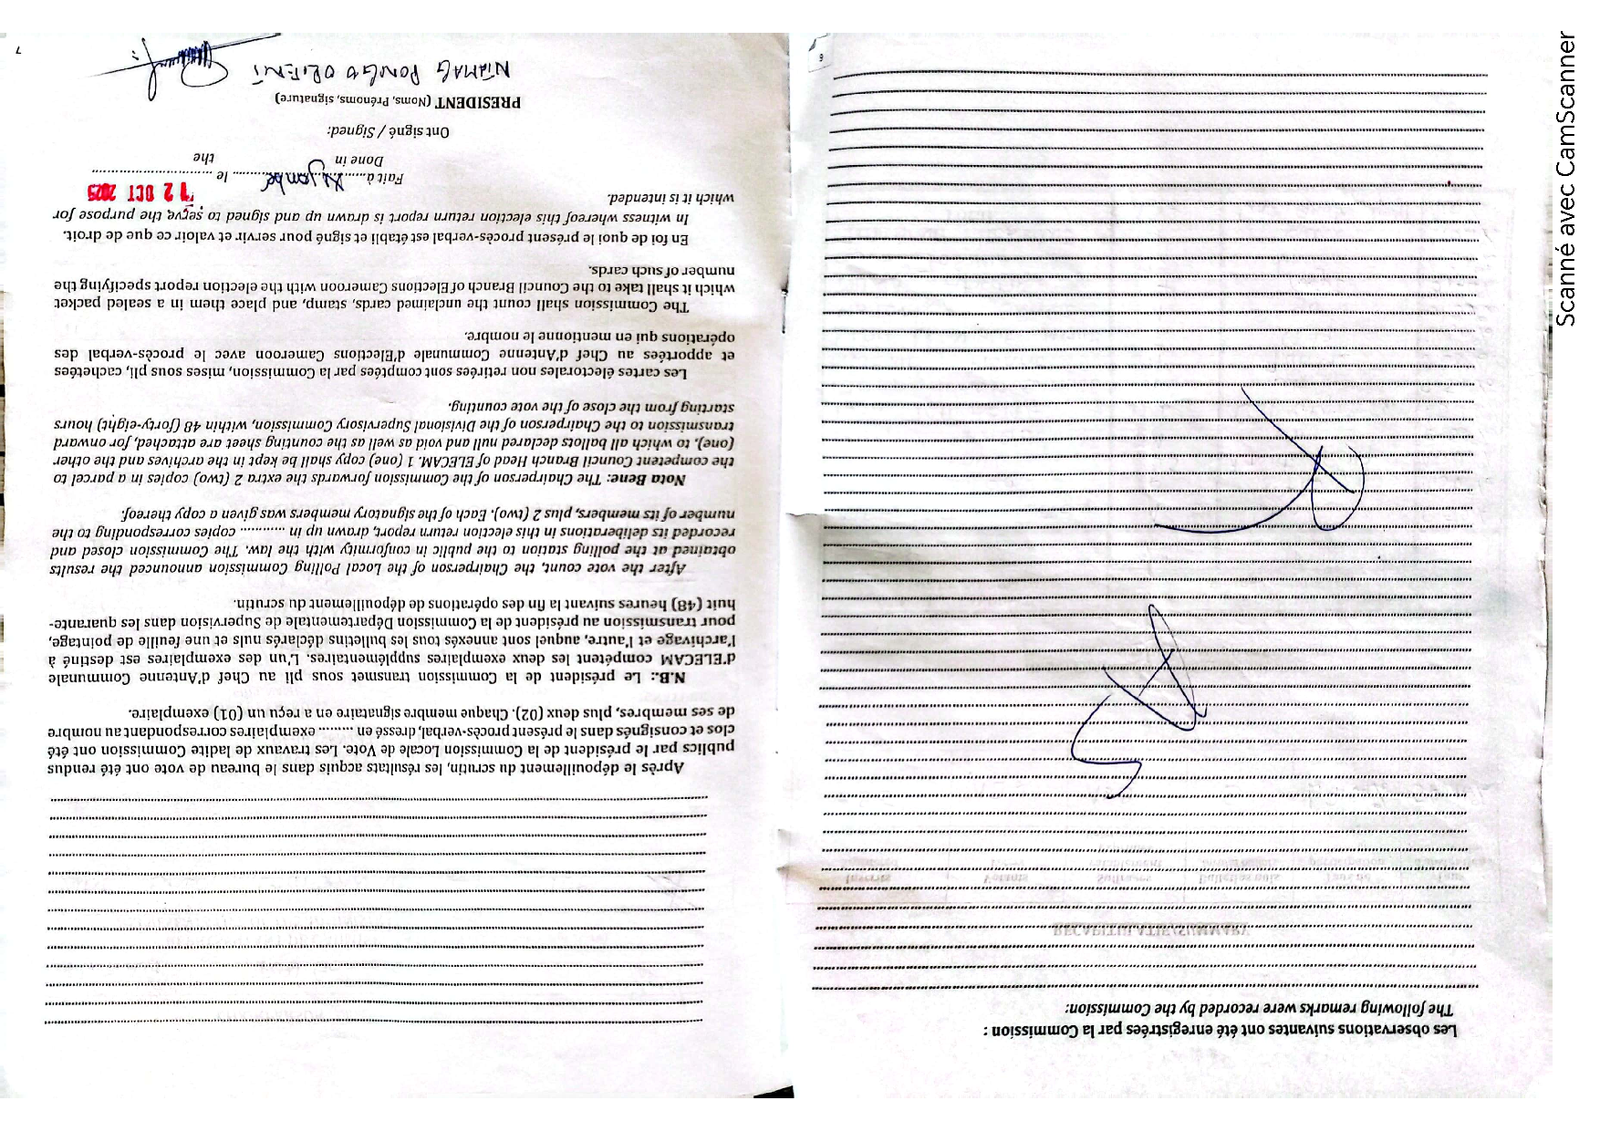 Les observations suivantes ont été enregistrées par la Commission :
The following remarks were recorded by the Commission:
6
Après le dépouillement du scrutin, les résultats acquis dans le bureau de vote ont été rendus
publics par le président de la Commission Locale de Vote. Les travaux de ladite Commission ont été
clos et consignés dans le présent procès-verbal, dressé en ......... exemplaires correspondant au nombre
de ses membres, plus deux (02). Chaque membre signataire en a reçu un (01) exemplaire.
N.B.: Le président de la Commission transmet sous pli au Chef d'Antenne Communale
d'ELECAM compétent les deux exemplaires supplémentaires. L'un des exemplaires est destiné à
l'archivage et l'autre, auquel sont annexés tous les bulletins déclarés nuls et une feuille de pointage,
pour transmission au président de la Commission Départementale de Supervision dans les quarante-
huit (48) heures suivant la fin des opérations de dépouillement du scrutin.
After the vote count, the Chairperson of the Local Polling Commission announced the results
obtained at the polling station to the public in conformity with the law. The Commission closed and
recorded its deliberations in this election return report, drawn up in ........... copies corresponding to the
number of its members, plus 2 (two). Each of the signatory members was given a copy thereof.
Nota Bene: The Chairperson of the Commission forwards the extra 2 (two) copies in a parcel to
the competent Council Branch Head of ELECAM. 1 (one) copy shall be kept in the archives and the other
(one), to which all ballots declared null and void as well as the counting sheet are attached, for onward
transmission to the Chairperson of the Divisional Supervisory Commission, within 48 (forty-eight) hours
starting from the close of the vote counting.
Les cartes électorales non retirées sont comptées par la Commission, mises sous pli, cachetées
et apportées au Chef d'Antenne Communale d'Elections Cameroon avec le procès-verbal des
opérations qui en mentionne le nombre.
The Commission shall count the unclaimed cards, stamp, and place them in a sealed packet
which it shall take to the Council Branch of Elections Cameroon with the election report specifying the
number of such cards.
En foi de quoi le présent procès-verbal est établi et signé pour servir et valoir ce que de droit.
In witness whereof this election return report is drawn up and signed to serve the purpose for
which it is intended.
Fait à ........ le 12 OCT 2025
Done in the
Ont signé / Signed:
PRESIDENT (Noms, Prénoms, signature)
7
Scanné avec CamScanner